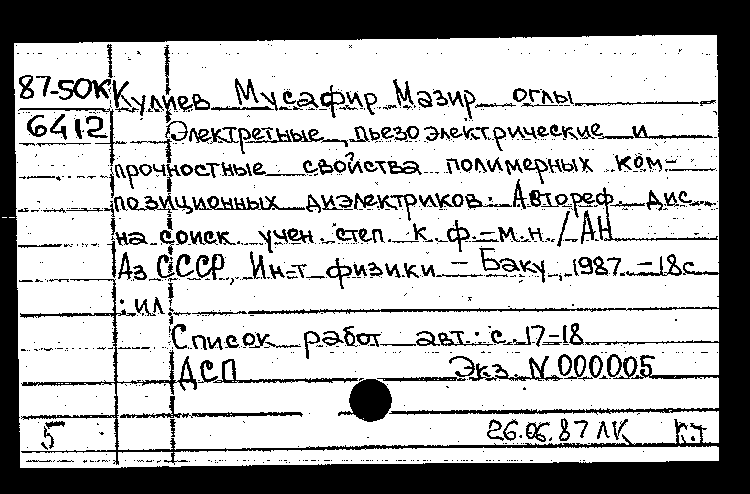 87-50К Кулиев Мусафир Мазир оглы
6412 Электретные, пьезоэлектрические и
прочностные свойства полимерных ком-
позиционных диэлектриков: Автореф. дис.
на соиск. учен. степ. к. ф.-м.н. / АН
Аз ССР, Ин-т физики – Баку, 1987. – 18с
: ил.
Список работ авт.: с. 17-18
ДСП Экз. N 000005
5 26.06.87 ЛК К.Т